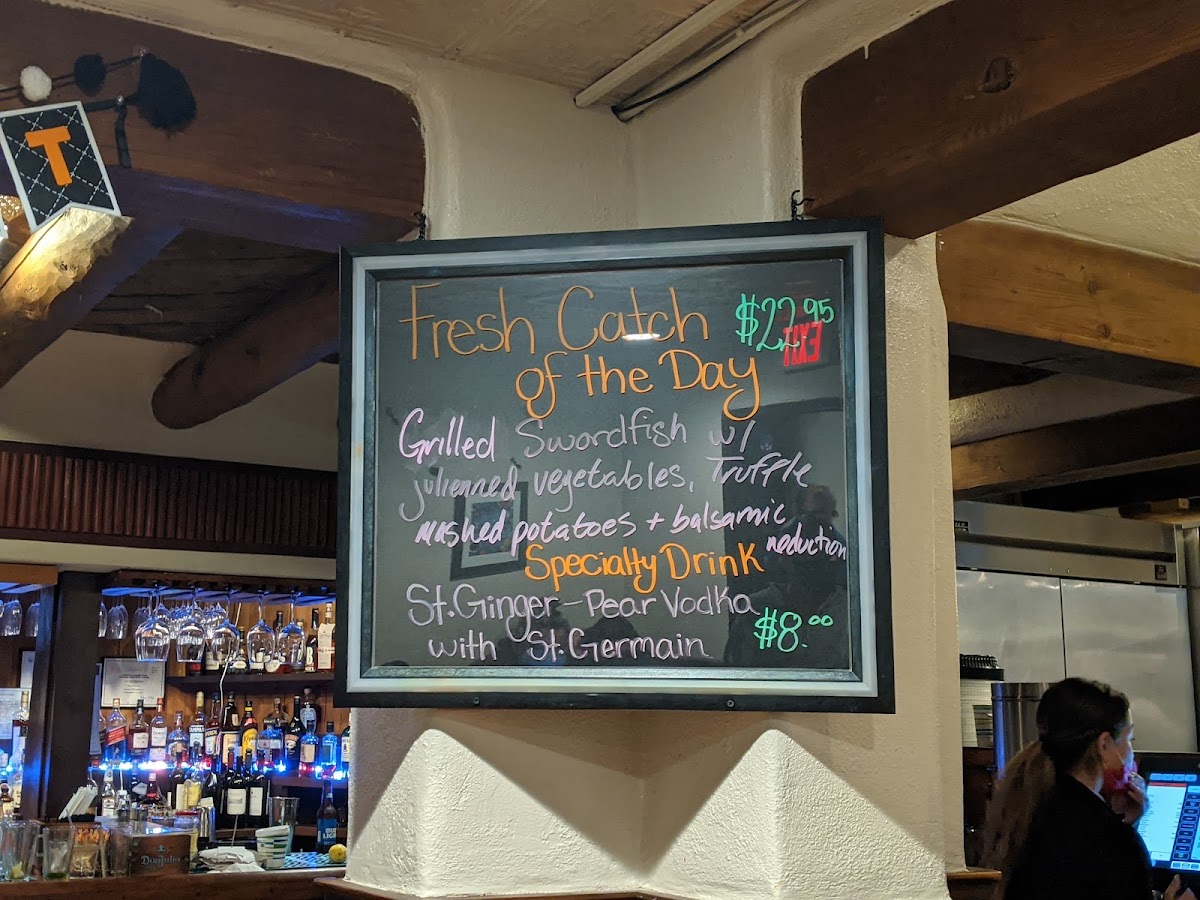 T
Fresh Catch $22.95
EXIT
of the Day
Grilled Swordfish w/
julienned vegetables, Truffle
mashed potatoes + balsamic
reduction
Specialty Drink
St. Ginger - Pear Vodka
with St. Germain $8.00
BUD
LIGHT
DonJulio